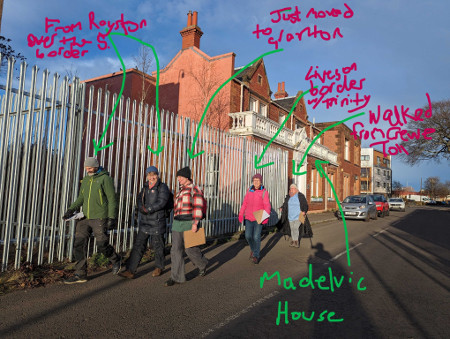 From Royston
over the S.
border
Just moved
to Granton
Lives on
border
w/ Trinity
Walked
from Crewe
Toll
Madelvic
House